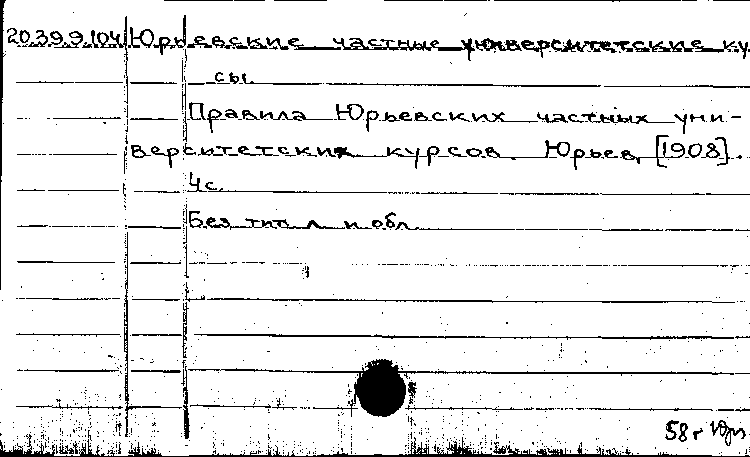 20.39.9.104 Юрьевские частные университетские ку
сы.
Правила Юрьевских частных уни-
верситетских курсов. Юрьев, [1908].
4с.
Без тит. л. и обл.
58г Юрь